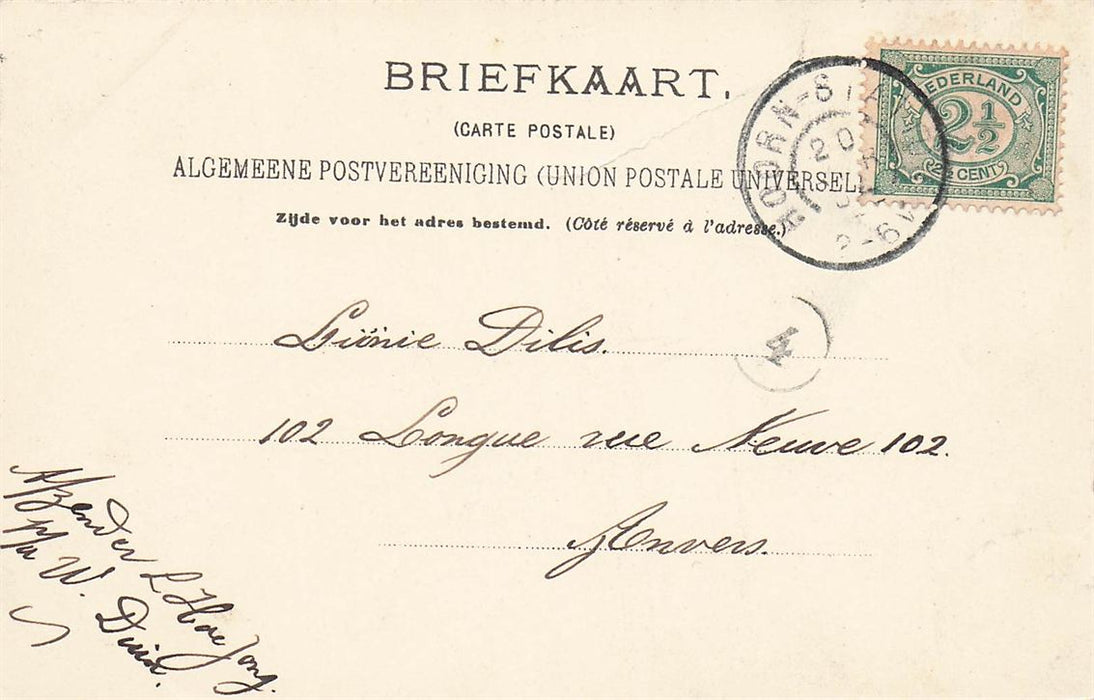 BRIEFKAART.
(CARTE POSTALE)
ALGEMEENE POSTVEREENIGING (UNION POSTALE UNIVERSEL
Zijde voor het adres bestemd. (Côté réservé à l'adresse.)
NEDERLAND
2½
CENT
HOORN-STA
20
4
Dilis.
102 Longue rue Neuve 102.
Anvers.
Afzender L H de Jong.
p/a W. Duin.